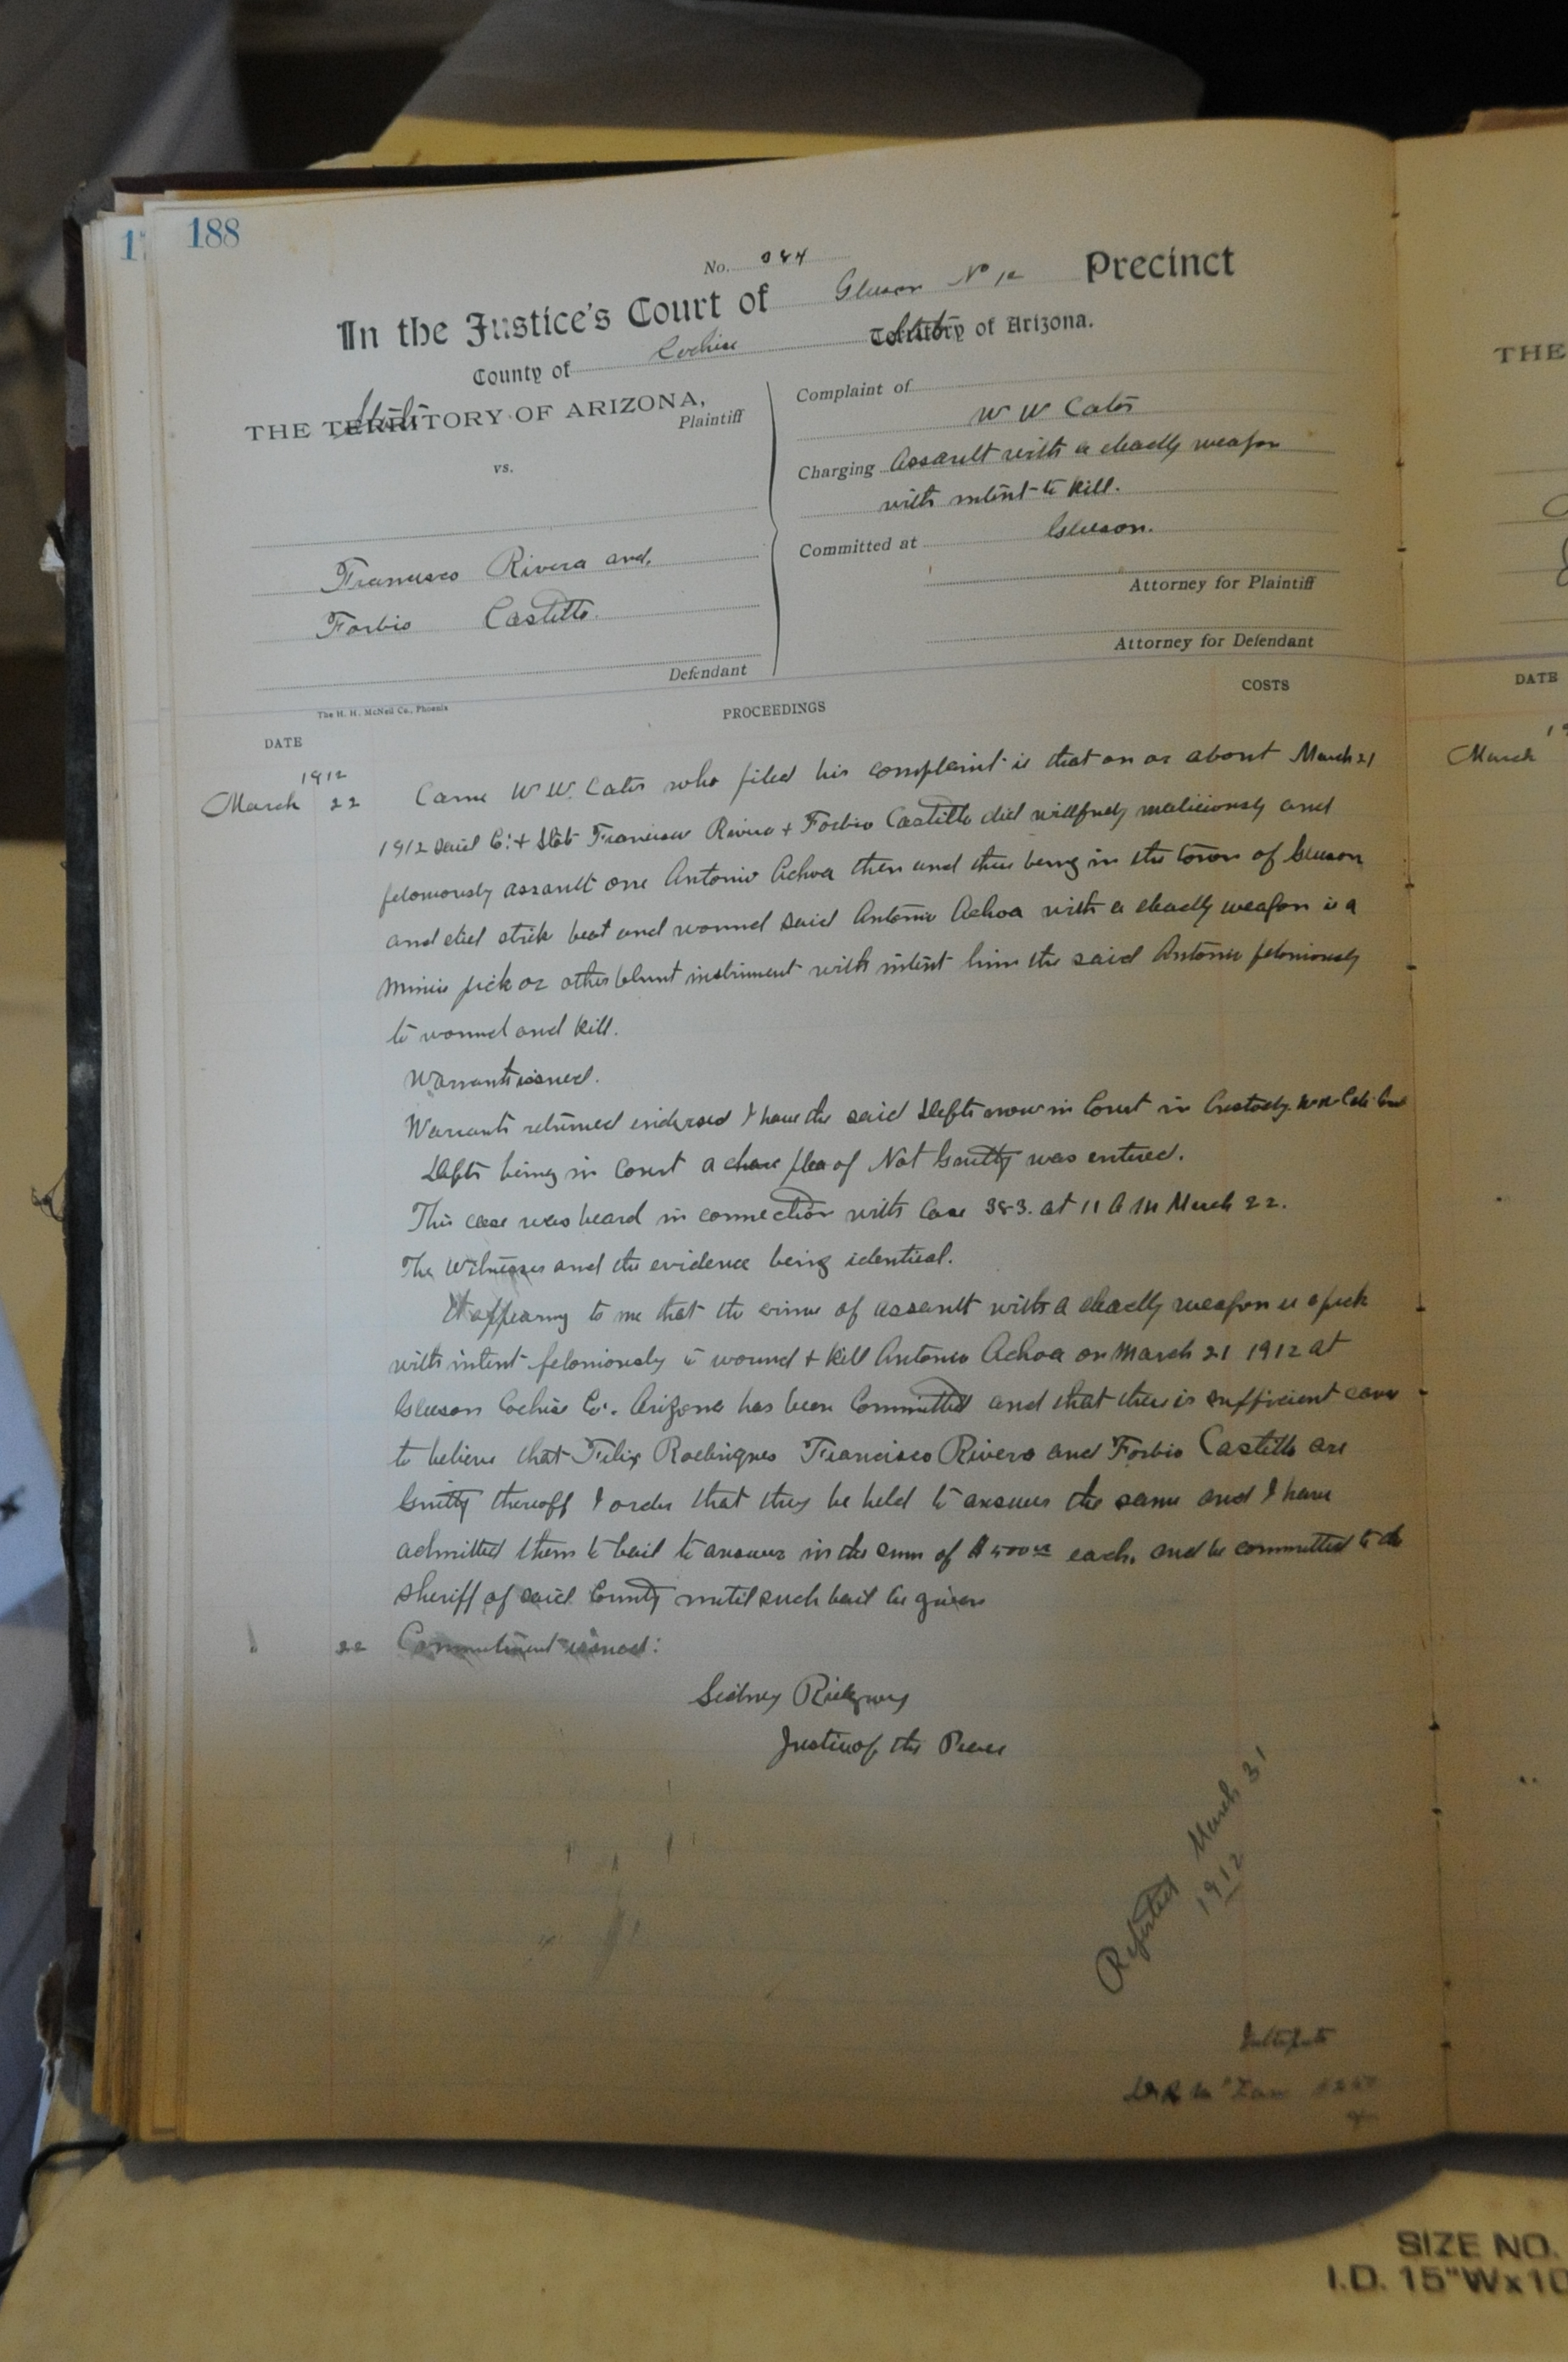 188
No. 384
In the Justice's Court of Gleeson No 12 Precinct
County of Cochise State of Arizona.
THE State OF ARIZONA,
Plaintiff
vs.
Francisco Rivera and,
Forbio Castillo.
Defendant
Complaint of
W W Cates
Charging Assault with a deadly weapon
with intent to kill.
Committed at Gleeson.
Attorney for Plaintiff
Attorney for Defendant
The H. H. McNeil Co., Phoenix
DATE
PROCEEDINGS
COSTS
1912
March 22 Came W W. Cates who filed his complaint ie that on or about March 21
1912 said Co. + State Francisco Rivera + Forbio Castillo did willfully maliciously and
feloniously assault one Antonio Achoa then and there being in the town of Gleeson
and did strik beat and wound said Antonio Achoa with a deadly weapon ie a
pick or other blunt instrument with intent him the said Antonio feloniously
to wound and kill.
Warrant issued.
Warrant returned endorsed I have the said Defts now in Court in Custody. W W Cates
Defts being in Court a plea of Not Guilty was entered.
This case was heard in connection with Case 383. at 11 A M March 22.
The Witnesses and the evidence being identical.
It appearing to me that the crime of assault with a deadly weapon ie a pick
with intent feloniously to wound + kill Antonio Achoa on March 21 1912 at
Gleeson Cochise Co. Arizona has been Committed and that there is sufficient cause
to believe that Felix Rodrigues Francisco Rivera and Forbio Castillo are
Guilty thereoff I order that they be held to answer the same and I have
admitted them to bail to answer in the sum of $500.00 each, and be committed to the
Sheriff of said County until such bail be given
22 Commitment issued:
Sidney Ridgway
Justice of the Peace
Reported March 31
1912
THE
DATE
March
SIZE NO.
I.D. 15"Wx10